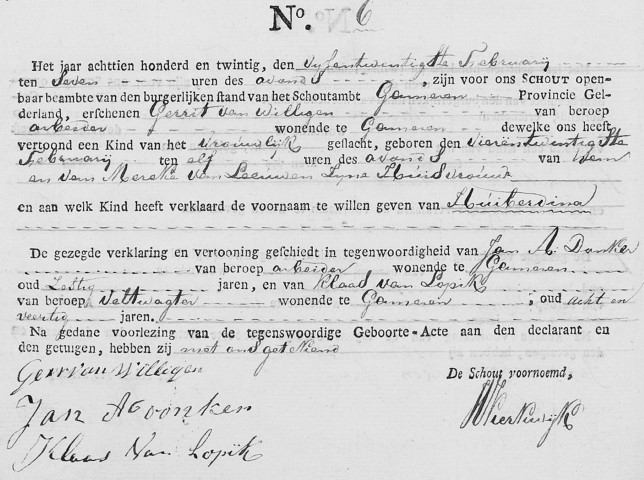 No. 6
Het jaar achttien honderd en twintig, den vyfentwentigste February
ten Seven uren des avonds, zijn voor ons SCHOUT open-
baar beambte van den burgerlijken stand van het Schoutambt Gameren Provincie Gel-
derland, erschenen Gerrit van Willigen van beroep
arbeider wonende te Gameren dewelke ons heeft
vertoond een Kind van het vrouwlyk geslacht, geboren den vierentwintigste
February ten elf uren des avonds van hem
en van Mereke van Leeuwen Zyne Huisvrouw
en aan welk Kind heeft verklaard de voornaam te willen geven van Huiberdina
De gezegde verklaring en vertooning geschiedt in tegenwoordigheid van Jan A. Donker
van beroep arbeider wonende te Gameren
oud Zestig jaren, en van Klaas van Lopik
van beroep Veltwagter wonende te Gameren, oud acht en
veertig jaren.
Na gedane voorlezing van de tegenswoordige Geboorte-Acte aan den declarant en
den getuigen, hebben zij met ons getekend
Gerr van Willigen
De Schout voornoemd,
Jan A Donker
Klaas Van Lopik